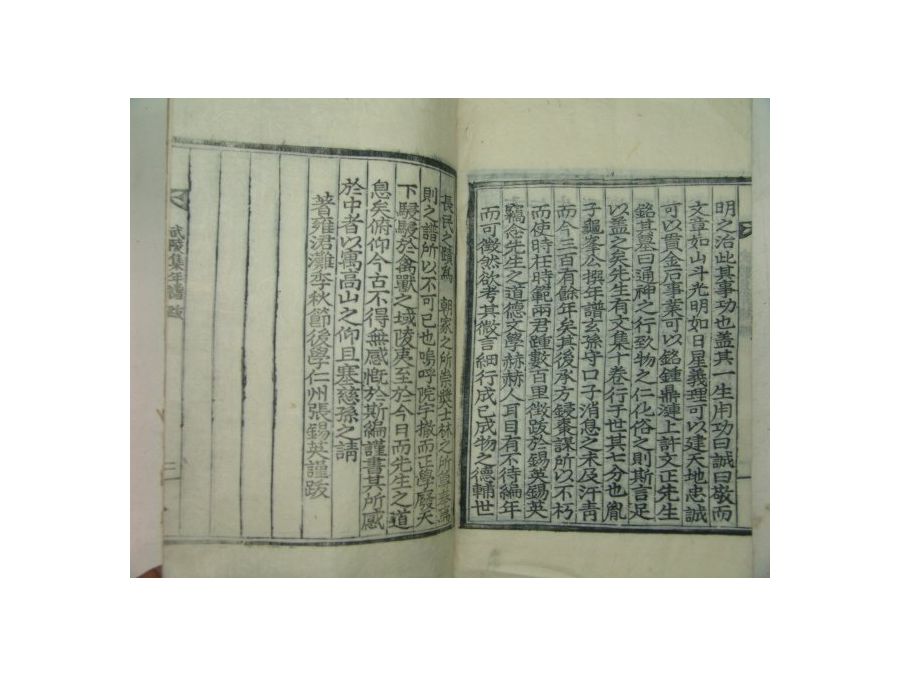 明之治此其事功也盖其一生用功曰誠曰敬而
文章如山斗光明如日星義理可以建天地忠誠
可以貫金石事業可以銘鍾鼎漣上許文正先生
銘其墓曰通神之行致物之仁化俗之則斯言足
以盖之矣先生有文集十卷行于世其七分也胤
子龜峯公撰年譜玄孫守口子消息之未及汗青
而今三百有餘年矣其後承方鋟棗謀所以不朽
而使時在時範兩君踵數百里徵跋於錫英錫英
竊念先生之道德文學赫赫人耳目有不待編年
而可徵然欲考其微言細行成已成物之德輔世
長民之蹟爲 朝家之所崇奬士林之所
則之譜所以不可已也嗚呼院宇撤而正學廢天
下駸駸於禽獸之域陵夷至於今日而先生之道
息矣俯仰今古不得無感慨於斯編謹書其所感
於中者以寓高山之仰且塞慈孫之請
著雍涒灘季秋節後學仁州張錫英謹跋
武陵集年譜 跋
二